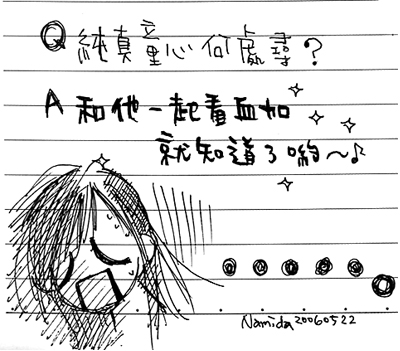 Q 純真童心何處尋?
A 和他一起看血如
就知道了喲～♪
Namida 20060522